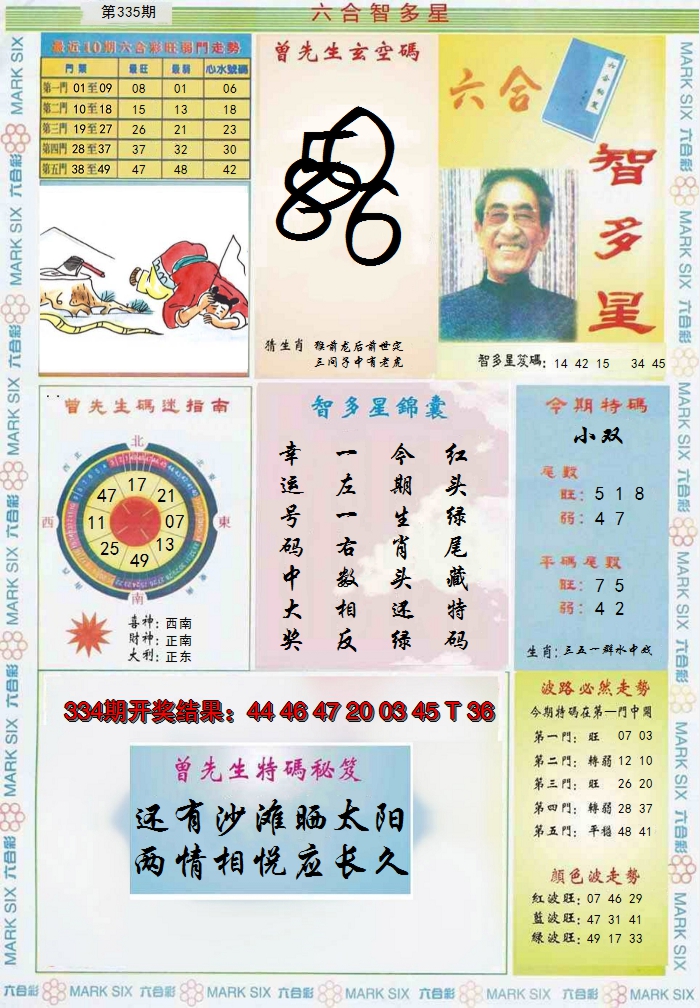 第335期
六合智多星
最近10期六合彩旺弱門走勢
門票 最旺 最弱 心水號碼
第一門 01至09 08 01 06
第二門 10至18 15 13 18
第三門 19至27 26 21 23
第四門 28至37 37 32 30
第五門 38至49 47 48 42
曾先生玄空碼
猜生肖 猴前龙后前世定
三问子中有老虎
六合
智多星
智多星笈碼: 14 42 15 34 45
曾先生碼迷指南
北
47 17 21
西 11 07 東
25 49 13
南
喜神: 西南
財神: 正南
大利: 正东
智多星錦囊
红头绿尾藏特码
今期生肖头还绿
一左一右数相反
幸运号码中大奖
今期特碼
小双
尾數
旺: 5 1 8
弱: 4 7
平碼尾數
旺: 7 5
弱: 4 2
生肖: 三五一群水中戏
334期开奖结果: 44 46 47 20 03 45 T 36
曾先生特碼秘笈
还有沙滩晒太阳
两情相悦应长久
波路必然走勢
今期特碼在第一門中開
第一門: 旺 07 03
第二門: 轉弱 12 10
第三門: 旺 26 20
第四門: 轉弱 28 37
第五門: 平穩 48 41
顏色波走勢
紅波旺: 07 46 29
藍波旺: 47 31 41
綠波旺: 49 17 33
MARK SIX 六合彩